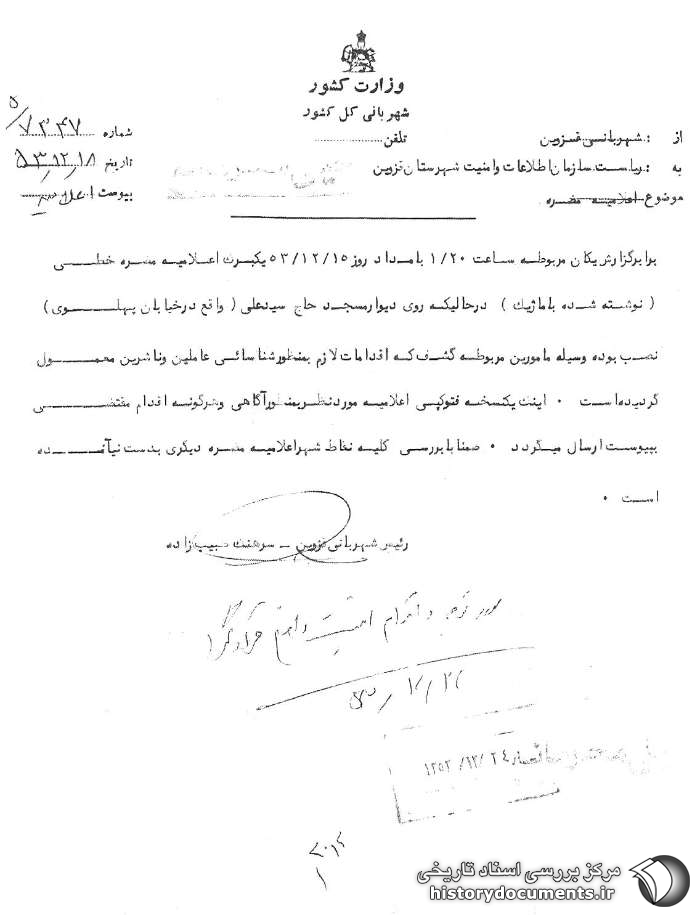 وزارت کشور
شهربانی کل کشور
از : شهربانی قزوین
تلفن
شماره ۵/۷۳۴۷
به : ریاست سازمان اطلاعات وامنیت شهرستان قزوین
تاریخ ۵۳/۱۲/۱۸
موضوع اعلامیه مضره
پیوست
برابرگزارش یکان مربوطه ساعت ۱/۲۰ بامداد روز ۵۳/۱۲/۱۵ یکبرگ اعلامیه مضره خطی
( نوشته شده باماژیک ) درحالیکه روی دیوارمسجد حاج سیدعلی ( واقع درخیابان پهلوی )
نصب بوده وسیله مامورین مربوطه کشف که اقدامات لازم بمنظورشناسائی عاملین وناشرین معمول
گردیده است ۰ اینک یکنسخه فتوکپی اعلامیه موردنظربمنظورآگاهی وهرگونه اقدام مقتضی
بپیوست ارسال میگردد ۰ ضمنا بابررسی کلیه نقاط شهراعلامیه مضره دیگری بدست نیآمده
است ۰
رئیس شهربانی قزوین - سرهنگ حبیب زاده
۱۳۵۳/۱۲/۲۴
مرکز بررسی اسناد تاریخی
historydocuments.ir